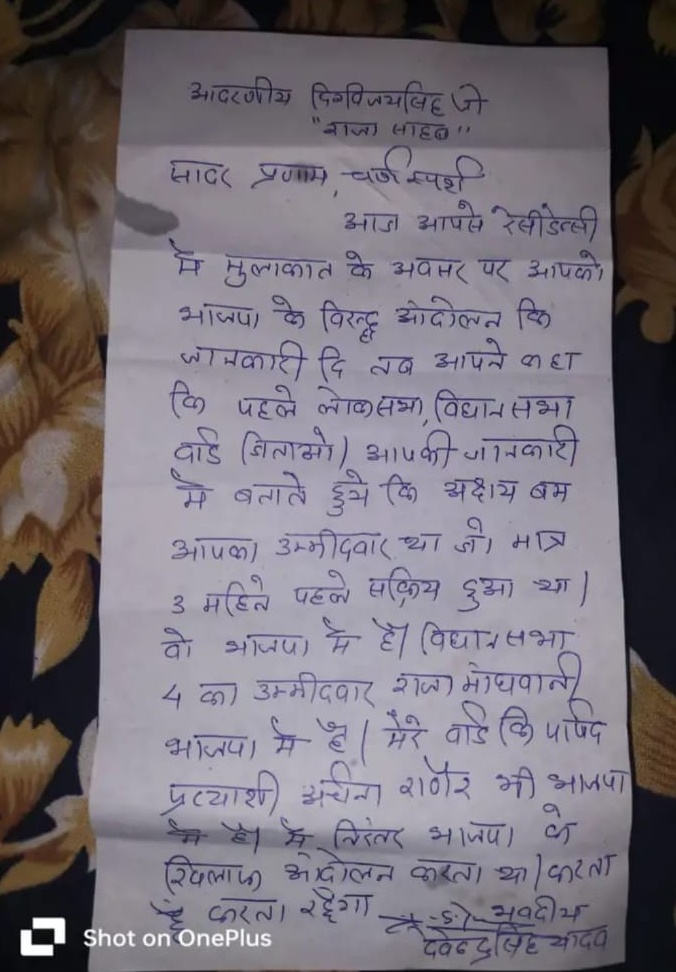 आदरणीय दिग्विजयसिंह जी
"राजा साहब"
सादर प्रणाम, चर्ण स्पर्श
आज आपसे रेसीडेन्सी
मे मुलाकात के अवसर पर आपको
भाजपा के विरुद्ध आंदोलन कि
जानकारी दि तब आपने कहा
कि पहले लोकसभा, विधानसभा
वार्ड जिताओ। आपकी जानकारी
मे बताते हुये कि अक्षय बम
आपका उम्मीदवार था जो मात्र
3 महिने पहले सक्रिय हुआ था।
वो भाजपा मे है। विधानसभा
4 का उम्मीदवार राजा मांधवानी
भाजपा मे है। मेरे वार्ड कि पार्षद
प्रत्याशी अर्चना राठौर भी भाजपा
मे है। मे निरंतर भाजपा के
खिलाफ आंदोलन करता था। करता
हूं करता रहूंगा
भवदीय
देवेन्द्रसिंह यादव
Shot on OnePlus